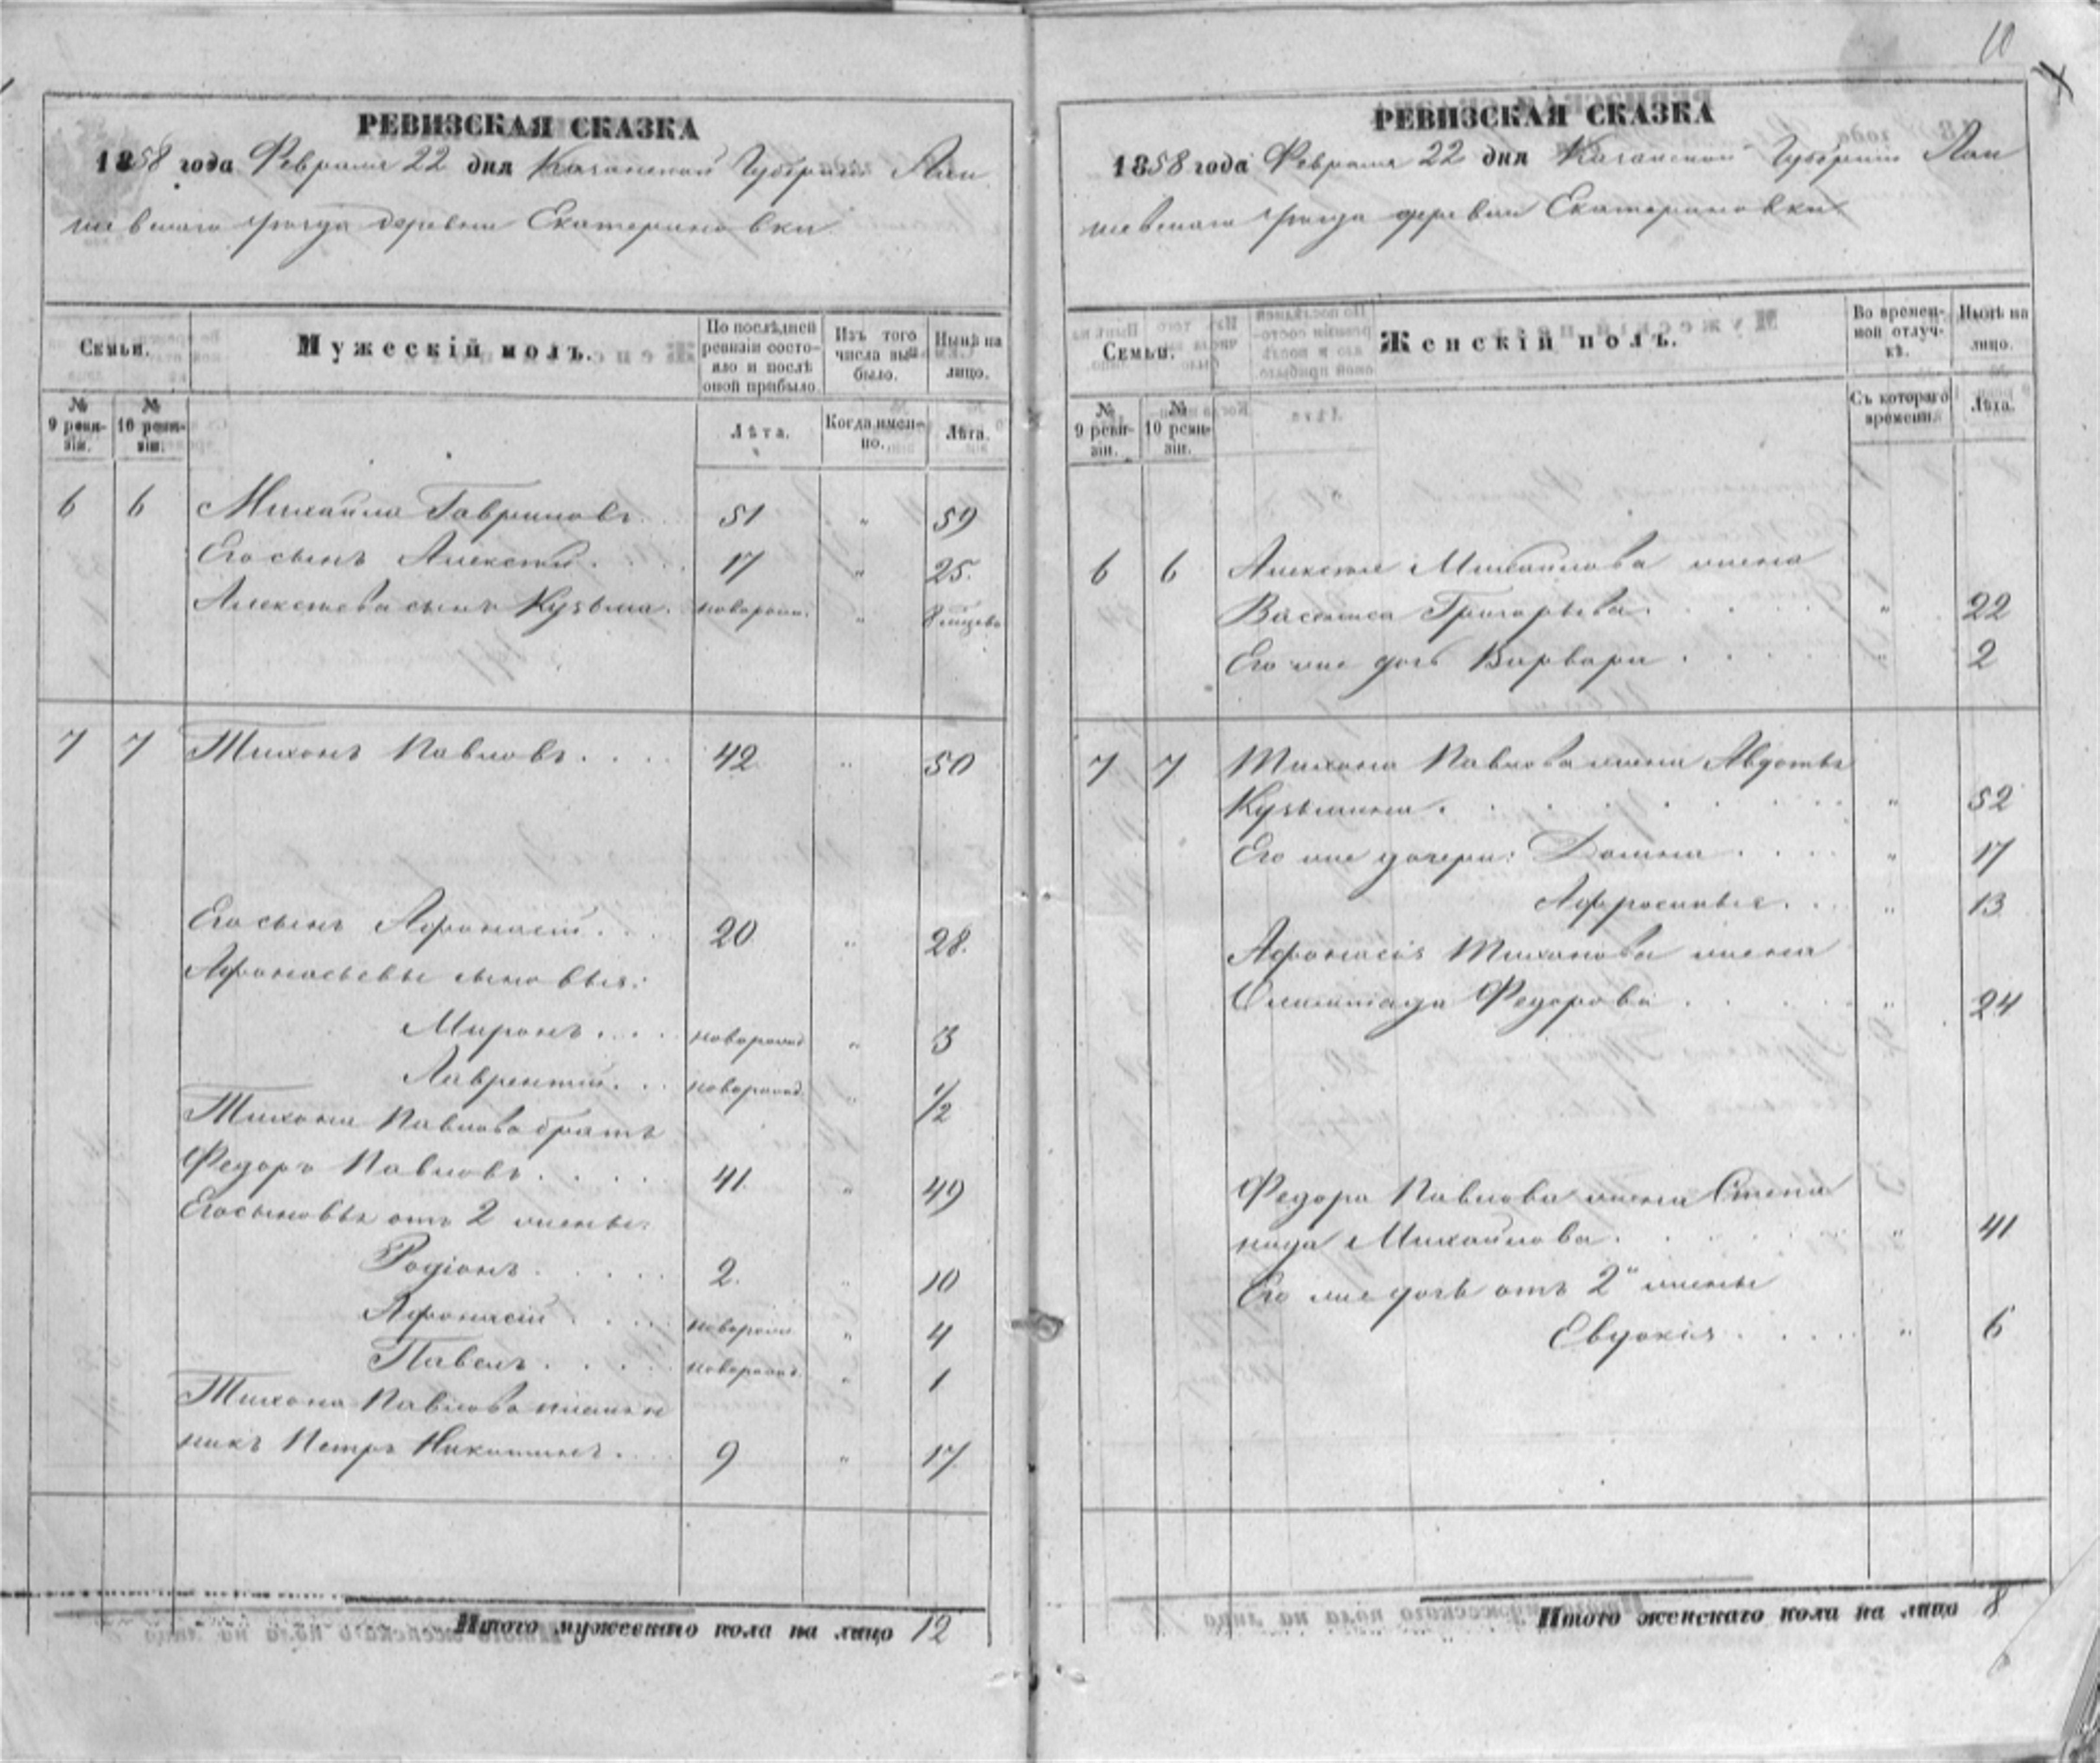 10
РЕВИЗСКАЯ СКАЗКА
1858 года Февраля 22 дня Казанской Губернiи Лаи
шевскаго уѣзда деревни Екатериновки
Семьи.
Мужескiй полъ.
По послѣдней ревизiи состояло и послѣ оной прибыло.
Изъ того числа выбыло.
Нынѣ на лицо.
№ 9 ревизiи.
№ 10 ревизiи.
Лѣта.
Когда именно.
Лѣта.
6 6 Михайла Гавриловъ 51 " 59
Его сынъ Алексѣй. 17 " 25.
Алексѣева сынъ Кузьма. новорожд. "
7 7 Тихонъ Павловъ. 42 " 50
Его сынъ Афонасiй. 20 " 28.
Афонасьевы сыновья:
Миронъ. новорожд. " 3
Лаврентiй. новорожд. " 1/2
Тихона Павлова братъ
Федоръ Павловъ. 41. " 49
Его сыновья отъ 2 жены:
Родiонъ. 2. " 10
Афонасiй. новорожд. " 4
Павелъ. новорожд. " 1
Тихона Павлова племян
никъ Петръ Никитинъ. 9 " 17
Итого мужескаго пола на лицо 12
РЕВИЗСКАЯ СКАЗКА
1858 года Февраля 22 дня Казанской Губернiи Лаи
шевскаго уѣзда деревни Екатериновки
Семьи.
Женскiй полъ.
Во временной отлучкѣ.
Нынѣ на лицо.
№ 9 ревизiи.
№ 10 ревизiи.
Съ котораго времени.
Лѣта.
6 6 Алексѣя Михайлова жена
Васелиса Григорьева. " 22
Его же дочь Варвара. " 2
7 7 Тихона Павлова жена Авдотья
Кузьмина. " 52
Его же дочери: Домна. " 17
Афросинья. " 13
Афонасiя Тихонова жена
Олимпiада Федорова. " 24
Федора Павлова жена Степа
нида Михайлова. " 41
Его же дочь отъ 2й жены
Евдокiя. " 6
Итого женскаго пола на лицо 8